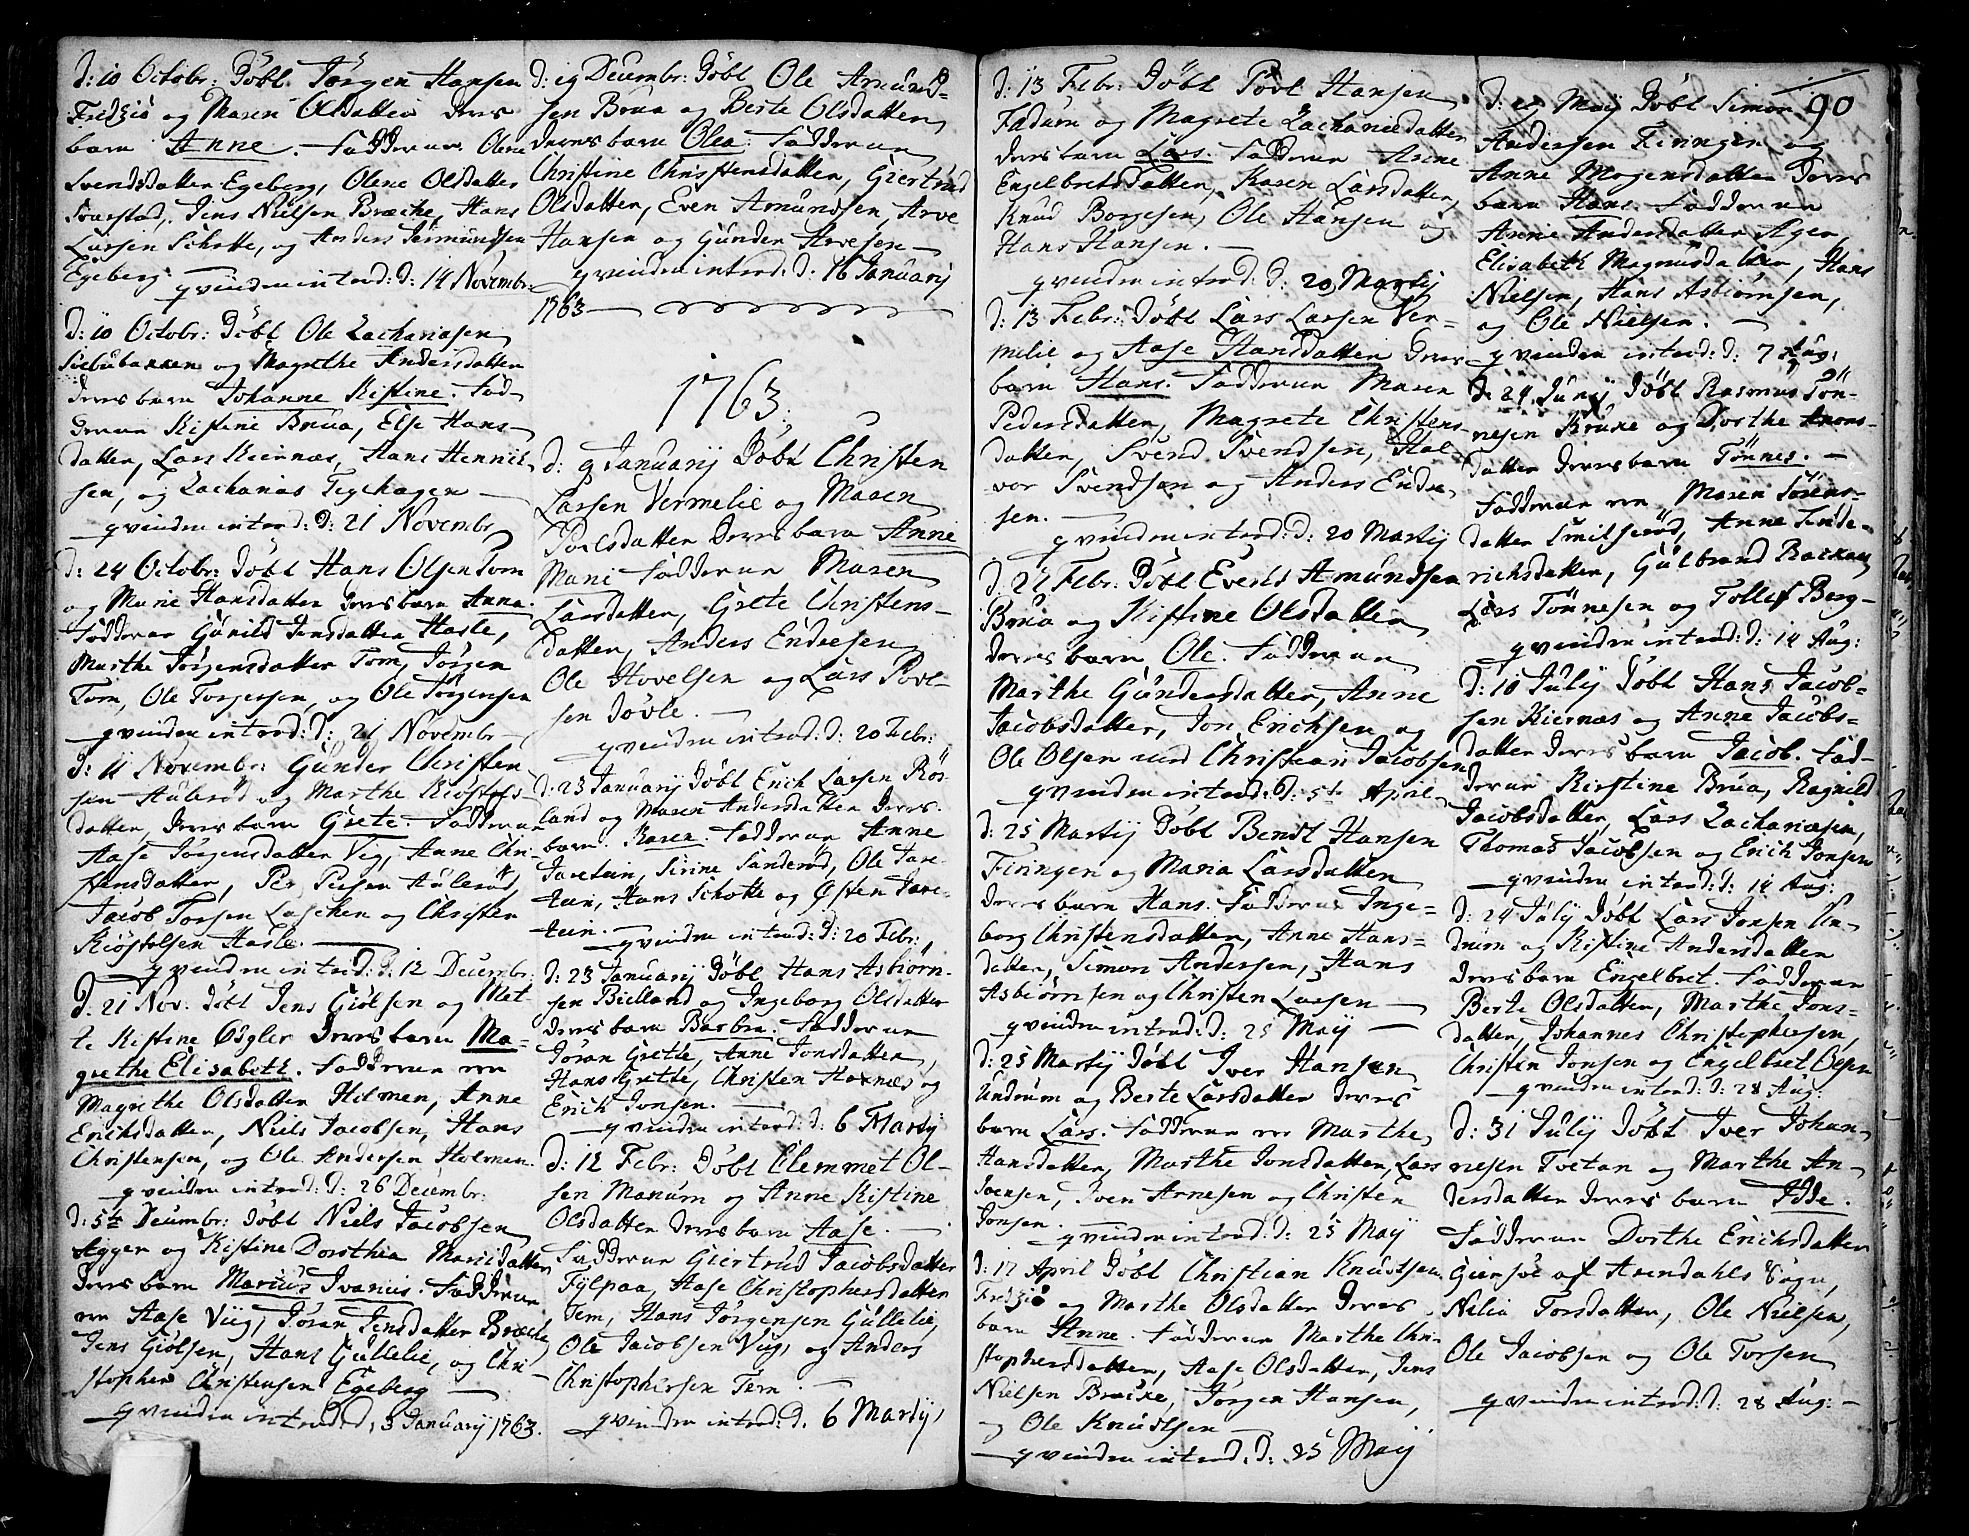 d: 10 Octobr: Döbt Jörgen Hansen
Fredziö og Maren Olsdatter deres
barn Anne. Fadderne Olene
Svendsdatter Egeberg, Olene Olsdatter
Svarstad, Jens Nielsen Bræche, Hans
Larsen Schotte, og Anders
Egeberg qvinden introd: d: 14 Novembr:
d: 10 Octobr: Döbt Ole Zachariasen
og Magrethe Andersdatter
deres barn Johanne Kistine. Fad-
derne Kistine Brua, Else Hans-
datter, Lars Kiernæs, Hans Henrik-
sen, og Zacharias Tegehagen
qvinden introd: d: 21 Novembr
d: 24 Octobr: Döbt Hans Olsen Tom
og Marie Hansdatter deres barn Anna.
Fadderne Gunild Jensdatter Hasle,
Marthe Jörgensdatter Tom, Jörgen
Tom, Ole Torgersen, og Ole Jörgensen
qvinden introd: d: 21 Novembr
d: 11 Novembr: Gunder Christen
sen Aulerød og Marthe Kiöstols-
datter, deres barn Grete. Fadderne
Aase Jörgensdatter Vig, Anne Chri-
stensdatter, Per Persen Aulerød,
Jacob Torsen Laschen og Christen
Kiöstolsen Hasle.
qvinden introd: d: 12 Decembr
d. 21 Nov: Döbt Jens Giölsen og Met
te Kistine Øgler deres barn Ma-
grethe Elisabeth. Fadderne ere
Magrethe Olsdatter Holmen, Anne
Erichsdatter, Niels Jacobsen, Hans
Christensen, og Ole Andersen Holmen.
qvinden introd: d: 26 Decembr:
d: 5te Decembr: Döbt Niels Jacobsen
Agger og Kistine Dorthea
deres barn Marius Ivarius. Fadderne
ere Aase Viig, Jöran Jensdatter Bræche
Jens Giölsen, Hans Gullelie, og Chri-
stopher Christensen Egeberg
qvinden introd: d, 3 Januarij 1763.
d: 19 Decembr: Döbt Ole Amund-
sen Brua og Berte Olsdatter
deres barn Olea. Fadderne
Christine Christensdatter, Giertrud
Olsdatter, Even Amundsen, Arve
Hansen og Gunder Arvesen
qvinden introd: d: 16 Januarij
1763
1763.
d: 9 Januarij Döbt Christen
Larsen Vermelie og Maren
Poelsdatter deres barn Anne
Marie Fadderne Maren
Larsdatter, Grete Christens-
datter, Anders Endresen
Ole Hovelsen og Lars Povl-
sen Jövle.
qvinden introd: d: 20 Febr:
d: 23 Januarij Döbt Erich Larsen Rös-
land og Maren Andersdatter deres
barn. Karen. Fadderne Anne
Jaretein, Sirine Sanderød, Ole Jare-
tein, Hans Schotte og Østen Jare-
tein.
qvinden introd: d: 20 Febr:
d: 23 Januarij Döbt Hans Asbiörn-
sen Bielland og Ingeborg Olsdatter
deres barn Barbra. Fadderne
Jöran Grette, Anne Jonsdatter,
Hans Grette, Christen Haxnæs og
Erich Jonsen.
qvinden introd: d: 6 Martij
d: 12 Febr: Döbt Clemmet Ol-
sen Manum og Anne Kistine
Olsdatter deres barn Aase.
Fadderne Giertrud Jacobsdatter
Fylpaa, Aase Christophersdatter
Tem, Hans Jörgensen Gullelie,
Ole Jacobsen Viig, og Anders
Christophersen Tem.
qvinden introd: d. 6 Martij
d: 13 Febr: Döbt Povl Hansen
Fadum og Magrete Zachariæsdatter
deres barn Lars. Fadderne Anne
Engelbretsdatter, Karen Larsdatter,
Knud Borgesen, Ole Hansen og
Hans Hansen.
qvinden introd: d: 20 Martij
d: 13 Febr: Döbt Lars Larsen Ver-
melie og Aase Hansdatter deres
barn Hans. Fadderne Maren
Pedersdatter, Magrete Christens
datter, Svend Svendsen, Hal-
vor Svendsen og Anders Endre-
sen.
qvinden introd: d: 20 Martij
d: 27 Febr: Döbt Evesld Amundsen
Brua og Kistine Olsdatter
deres barn Ole. Fadderne
Marthe Gundersdatter, Anne
Jacobsdatter, Jon Erichsen og
Ole Olsen und Christian Jacobsen
qvinden introd: d: 5te April
d: 25 Martij Döbt Bendt Hansen
Firingen og Maria Larsdatter
deres barn Hans. Fadderne Inge-
borg Christensdatter, Anne Hans-
datter, Simon Andersen, Hans
Asbiörnsen og Christen Larsen
qvinden introd: d: 25 Maij
d: 25 Martij Döbt Iver Hansen
Undrum og Berte Larsdatter deres
barn Lars. Fadderne ere Marthe
Hansdatter, Marthe Jonsdatter, Lars
Iversen, Iver Arnesen og Christen
Jonsen. qvinden introd: d: 25 Maij
d: 17 April Döbt Christian Knudtsen
Fredziö og Marthe Olsdatter deres
barn Anne. Fadderne Marthe Chri-
stophersdatter, Aase Olsdatter, Jens
Nielsen Bræcke, Jörgen Hansen,
og Ole Knudtsen
qvinden introd: d: 25 Maij
90
d: 29 Maij Döbt Simon
Andersen Firingen og
Anne Mogensdatter deres
barn Hans. Fadderne
Anne Andersdatter Ager,
Elisabeth Magnusdatter, Hans
Nielsen, Hans Asbiörnsen,
og Ole Nielsen.
qvinden introd: d: 7 Aug:
d: 24 Junij Döbt Rasmus Tön-
nesen Bruke og Dorthe
datter deres barn Tönnes.
Fadderne ere Maren Sörens-
datter Smilserød, Anne Fride-
richsdatter, Gulbrand Backen
Lars Tönnesen og Tollef Berg
qvinden introd: d: 14 Aug:
d: 10 Julij Döbt Hans Jacob-
sen Kiernæs og Anne Jacobs-
datter deres barn Jacob. Fad-
derne Kirstine Brua, Ragnild
Jacobsdatter, Lars Zachariæsen,
Thomas Jacobsen og Erich Jonsen
qvinden introd: d: 14 Aug:
d: 24 Julij Döbt Lars Jonsen Un-
drum og Kistine Andersdatter
deres barn Engelbret. Fadderne
Berte Olsdatter, Marthe Jons-
datter, Johannes Christophersen,
Christen Jonsen og Engelbret Olsen
qvinden introd: d: 28 Aug:
d: 31 Julij Döbt Iver Johan-
nesen Tvetan og Marthe An-
dersdatter deres barn Idde.
Fadderne Dorthe Erichsdatter
Giensøe af Arendahls Sogn,
Nilia Torsdatter, Ole Nielsen,
Ole Jacobsen og Ole Torsen
qvinden introd: d: 28 Aug: